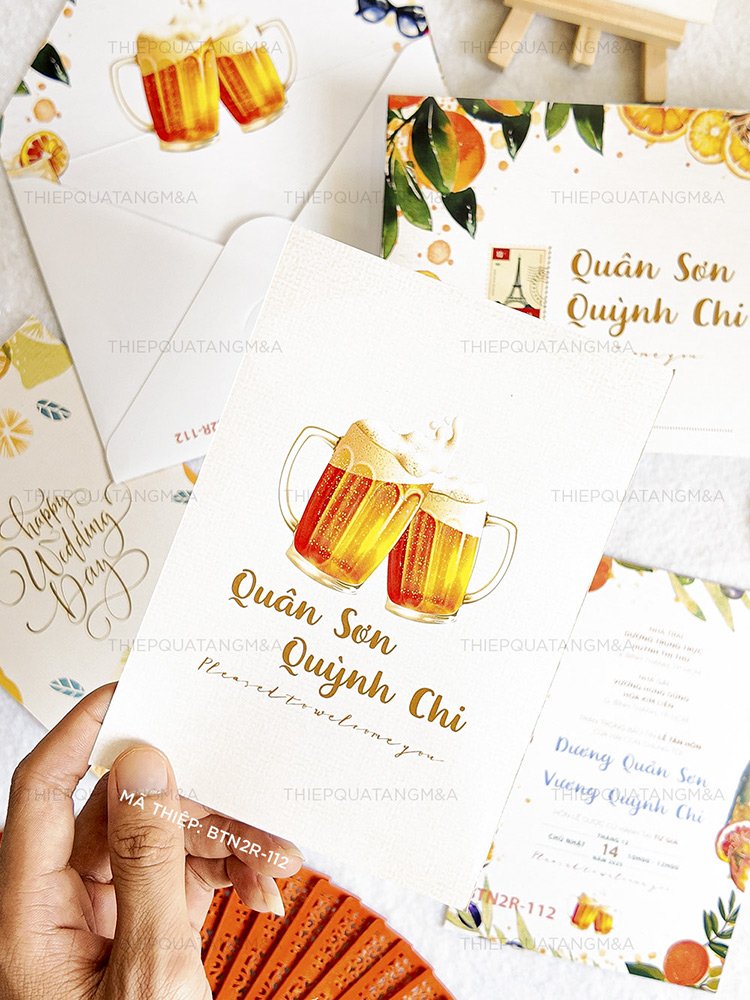 THIEPQUATANGM&A THIEPQUATANGM&A
THIEPQUATANGM&A THIEPQUATANGM&A
Quân Sơn
Quỳnh Chi
THIEPQUATANGM&A THIEPQUATANGM&A
BTN2R-112
THIEPQUATANGM&A THIEPQUATANGM&A
happy
Wedding
Day
Quân Sơn
Quỳnh Chi
Pleased to welcome you
THIEPQUATANGM&A THIEPQUATANGM&A
NHÀ TRAI
NHÀ GÁI
Dương Quân Sơn
Vương Quỳnh Chi
CHỦ NHẬT
THÁNG 12
14
BTN2R-112
THIEPQUATANGM&A THIEPQUATANGM&A
MÃ THIỆP: BTN2R-112
THIEPQUATANGM&A THIEPQUATANGM&A